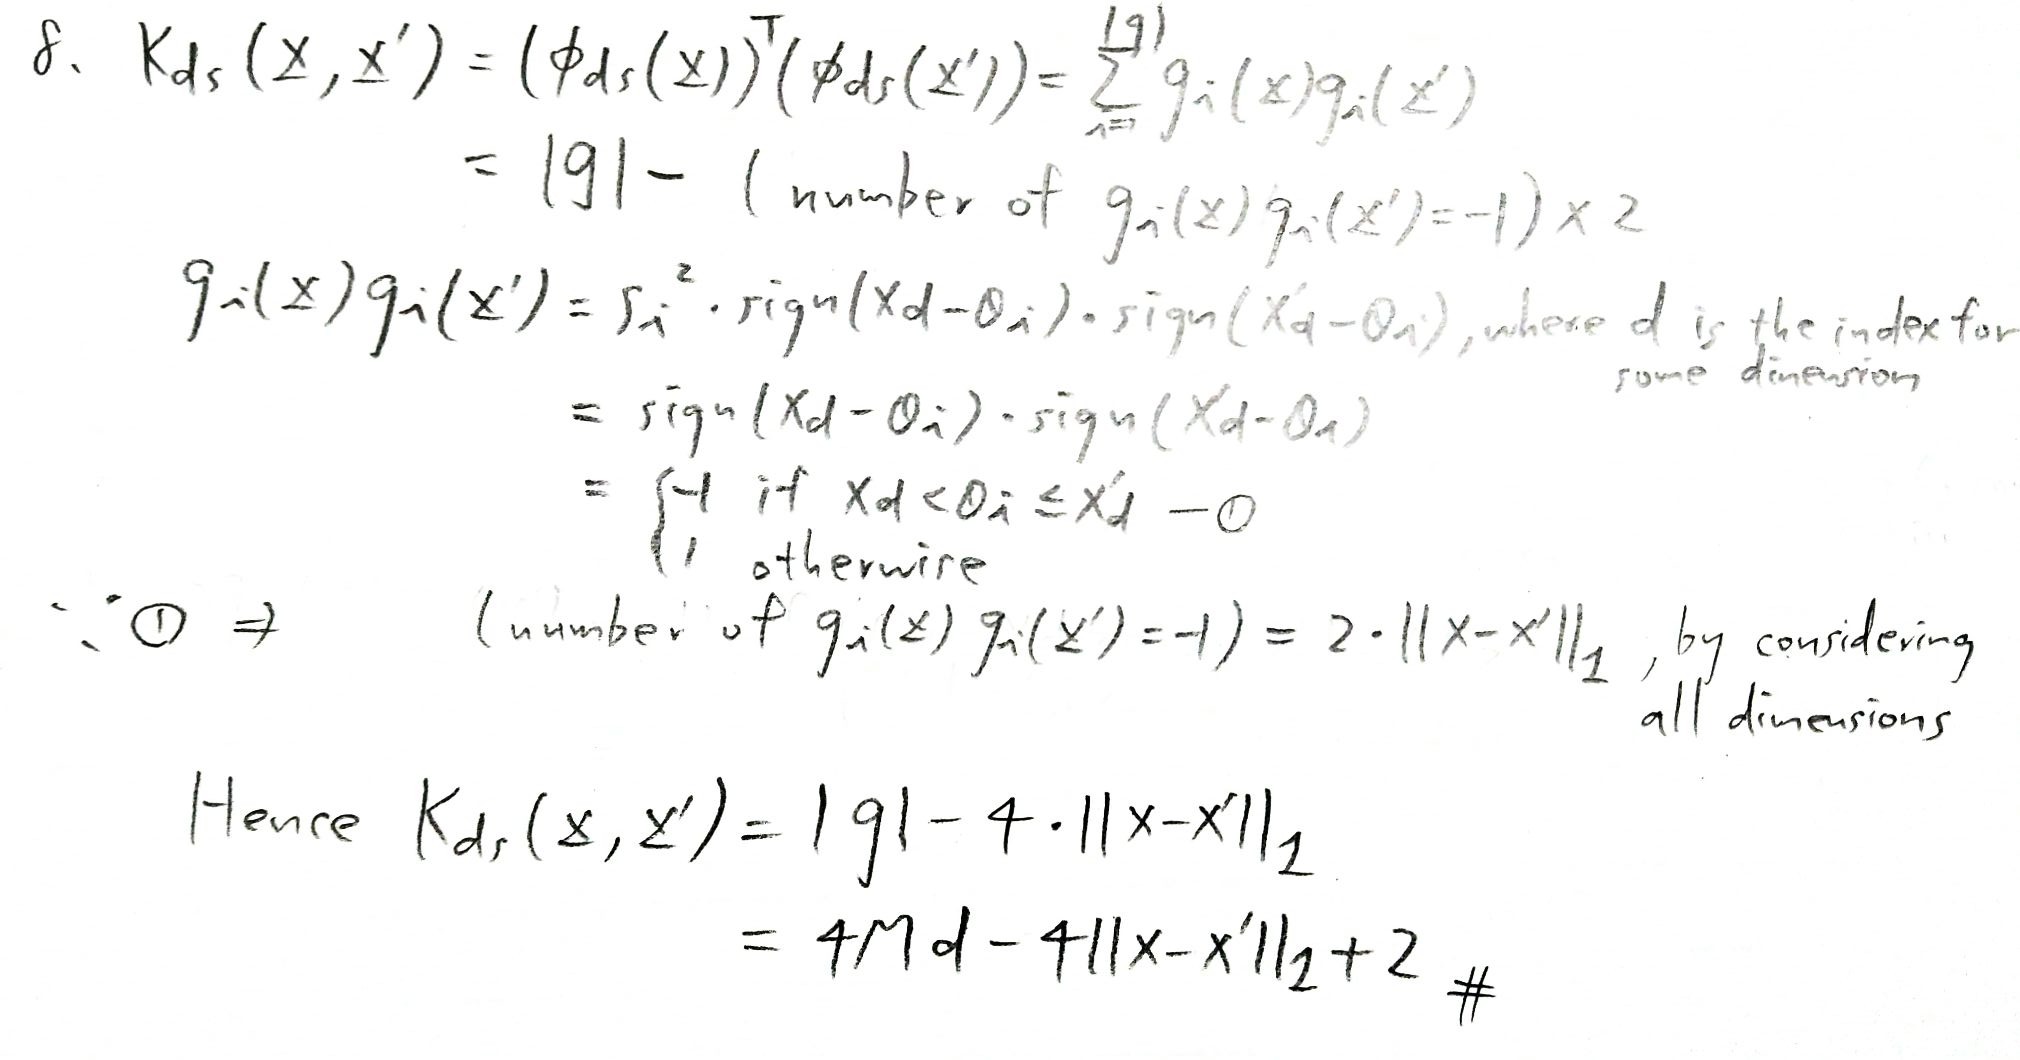 8. K_ds(x, x') = (ϕ_ds(x))^T (ϕ_ds(x')) = Σ_{i=1}^{|g|} g_i(x) g_i(x')
= |g| - (number of g_i(x) g_i(x') = -1) × 2
g_i(x) g_i(x') = s_i^2 · sign(x_d - θ_i) · sign(x'_d - θ_i), where d is the index for
some dimension
= sign(x_d - θ_i) · sign(x'_d - θ_i)
= { -1 if x_d < θ_i ≤ x'_d — ①
1 otherwise
∵ ① ⇒ (number of g_i(x) g_i(x') = -1) = 2 · ||x - x'||_1, by considering
all dimensions
Hence K_ds(x, x') = |g| - 4 · ||x - x'||_1
= 4Md - 4||x - x'||_1 + 2 #